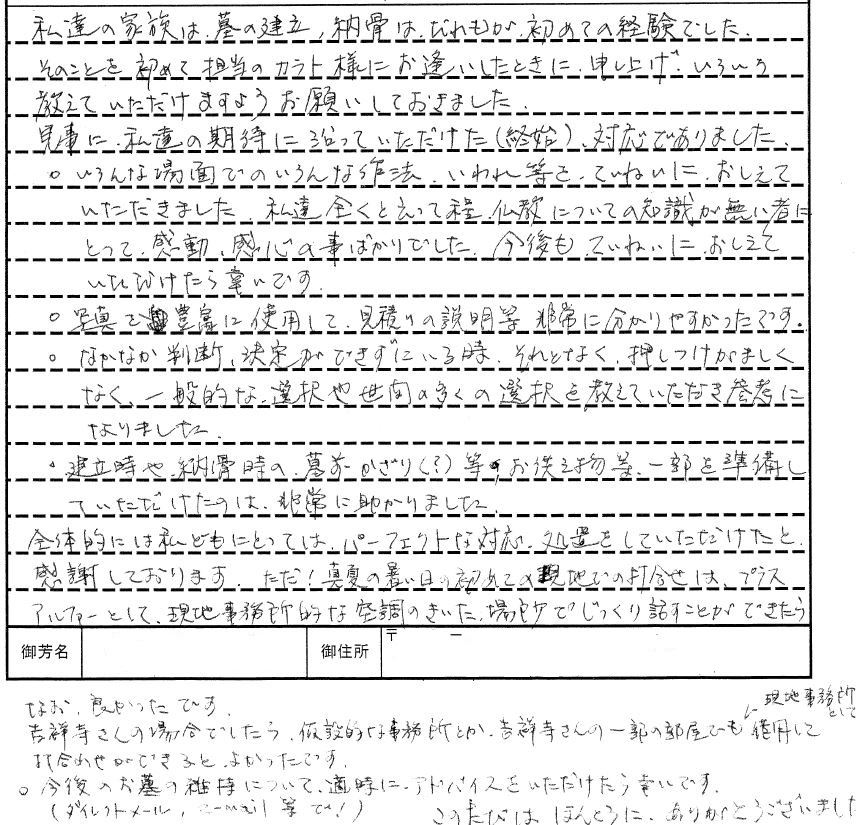 私達の家族は、墓の建立、納骨は、だれもが、初めての経験でした。
そのことを初めて担当のカラト様にお逢いしたときに、申し上げ、いろいろ
教えていただけますようお願いしておきました。
見事に、私達の期待に沿っていただけた(終始)、対応でありました。
○ いろんな場面でのいろんな作法、いわれ等を、ていねいに、おしえて
いただきました。私達、全くと言って程、仏教についての知識が無い者に
とって、感動、感心の事ばかりでした。今後も、ていねいに、おしえて
いただけたら幸いです。
○ 写真を豊富に使用して、見積りの説明等非常に分かりやすかったです。
○ なかなか判断、決定ができずにいる時、それとなく、押しつけがましく
なく、一般的な、選択や世間の多くの選択を教えていただき参考に
なりました。
・建立時や納骨時の、墓前かざり(?)等、お供え物等、一部を準備し
ていただけたのは、非常に助かりました。
全体的には私どもにとっては、パーフェクトな対応、処置をしていただけたと、
感謝しております。ただ!真夏の暑い日の初めての現地での打合せは、プラス
アルファーとして、現地事務所的な空調のきいた、場所でじっくり話すことができたら
御芳名
御住所
〒 －
なお、良かったです。
現地事務所
として
吉祥寺さんの場合でしたら、仮設的な事務所とか、吉祥寺さんの一部の部屋でも借用して
打合わせができると、よかったです。
○ 今後のお墓の維持について、適時に、アドバイスをいただけたら幸いです。
(ダイレクトメール、e-mail等で!)
このたびは、ほんとうに、ありがとうございました